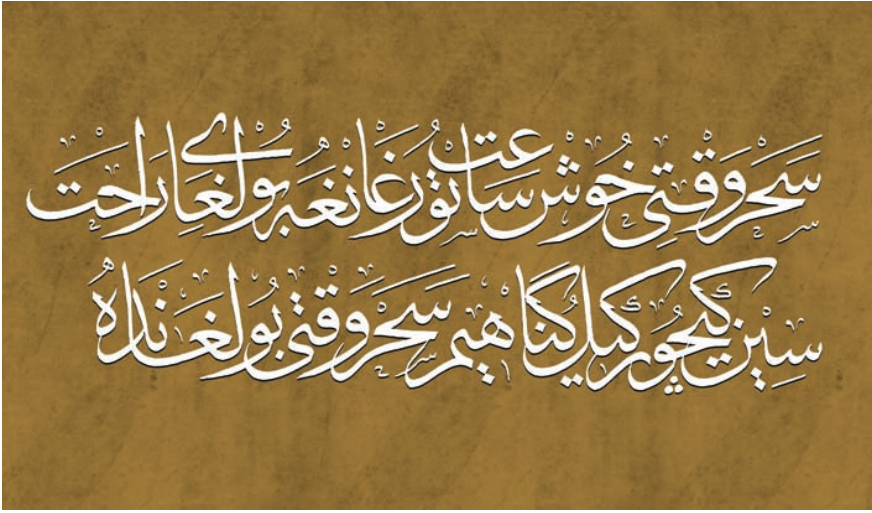 سحر وقتی خوش ساعت تورغانغه بولغای راحت
سین کیچورکیل گناهیم سحر وقتی بولغانده